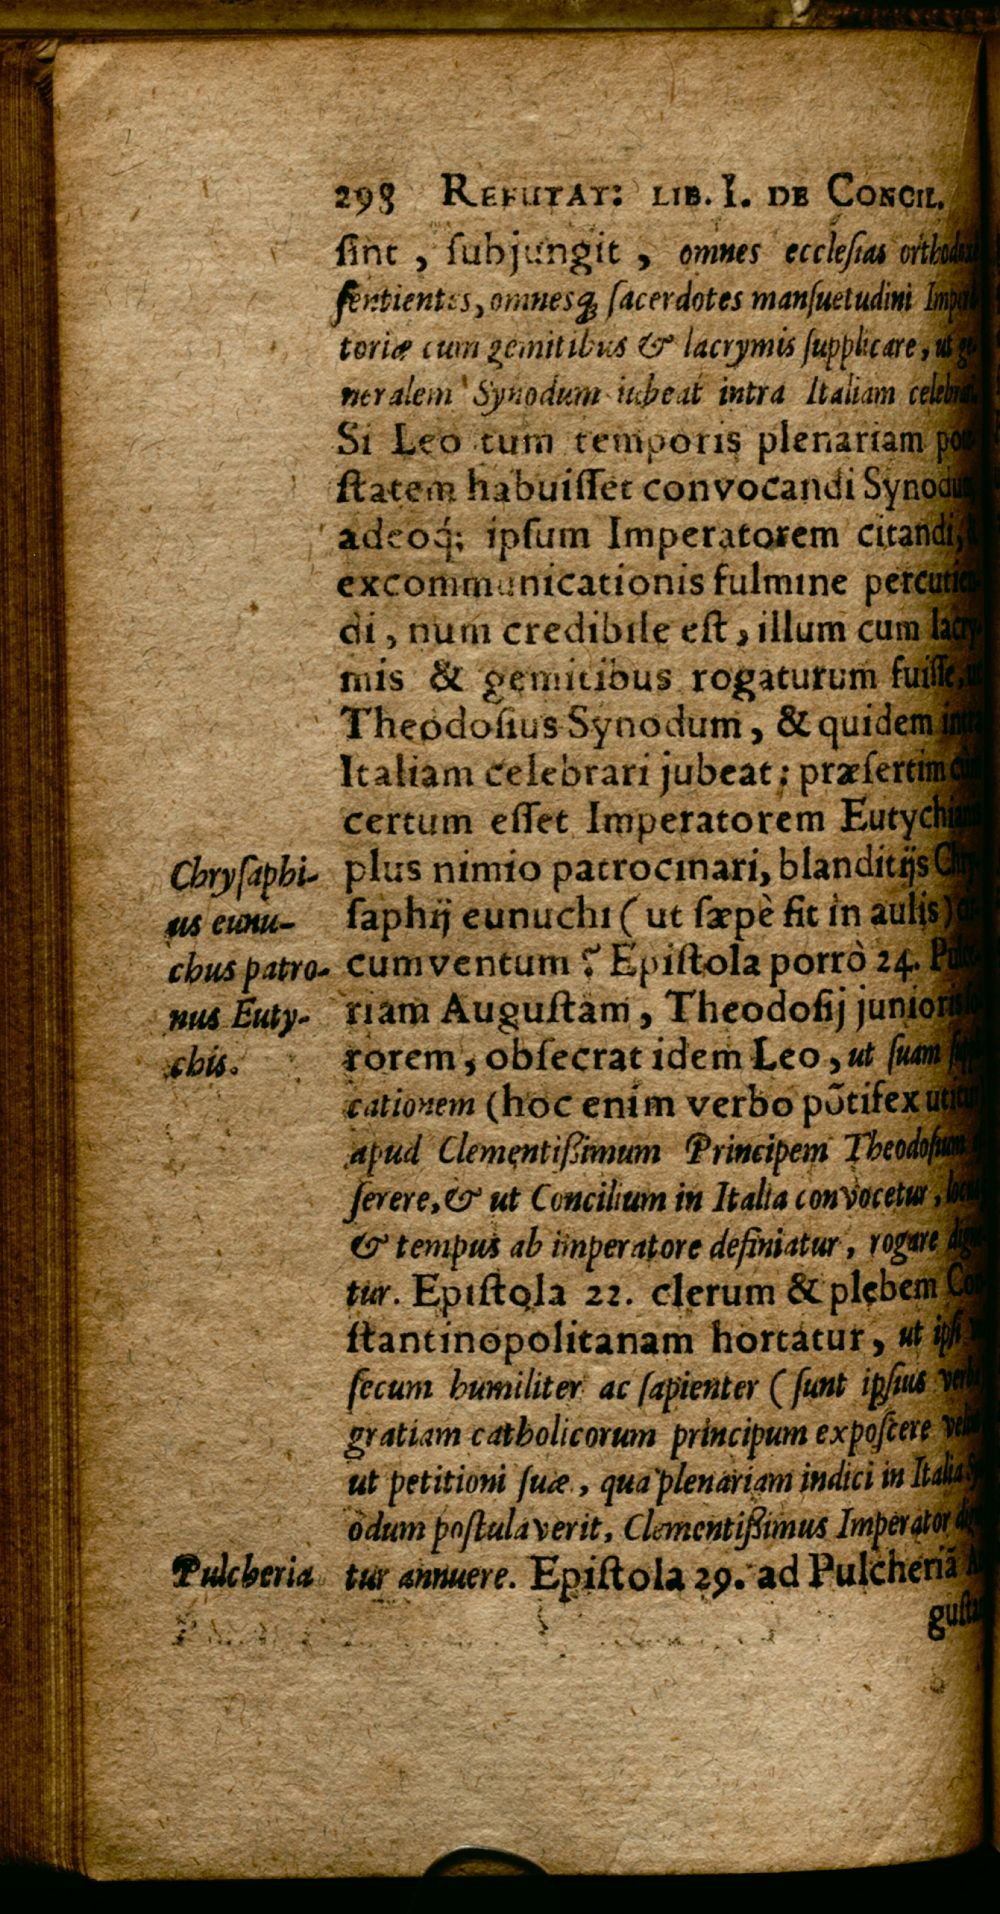 298 REFUTAT: LIB. I. DE CONCIL.
sint, subjungit, omnes ecclesias
sentientes, omnesq́; sacerdotes mansuetudini
toriæ cum gemitibus & lacrymis supplicare, ut
neralem Synodum iubeat intra Italiam celebrari.
Si Leo tum temporis plenariam
statem habuisset convocandi Synodum,
adeoq́; ipsum Imperatorem citandi,
excommunicationis fulmine percutien-
di, num credibile est, illum cum lacry-
mis & gemitibus rogaturum fuisse, ut
Theodosius Synodum, & quidem intra
Italiam celebrari jubeat; præsertim cùm
certum esset Imperatorem
plus nimio patrocinari, blanditijs Chry-
saphij eunuchi (ut sæpè fit in aulis)
cumventum? Epistola porrò 24. Pulche-
riam Augustam, Theodosij junioris
rorem, obsecrat idem Leo, ut suam
cationem (hoc enim verbo põtifex utitur)
apud Clementißimum Principem Theodosium
serere, & ut Concilium in Italia convocetur, locus
& tempus ab imperatore definiatur, rogare digne-
tur. Epistola 22. clerum & plebem Con-
stantinopolitanam hortatur, ut ipsi
secum humiliter ac sapienter (sunt ipsius verba)
gratiam catholicorum principum exposcere
ut petitioni suæ, qua plenariam indici in Italia Sy-
odum postulaverit, Clementißimus Imperator
tur annuere. Epistola 29. ad Pulcheriã
Chrysaphi-
us eunu-
chus patro-
nus Euty-
chis.
Pulcheria